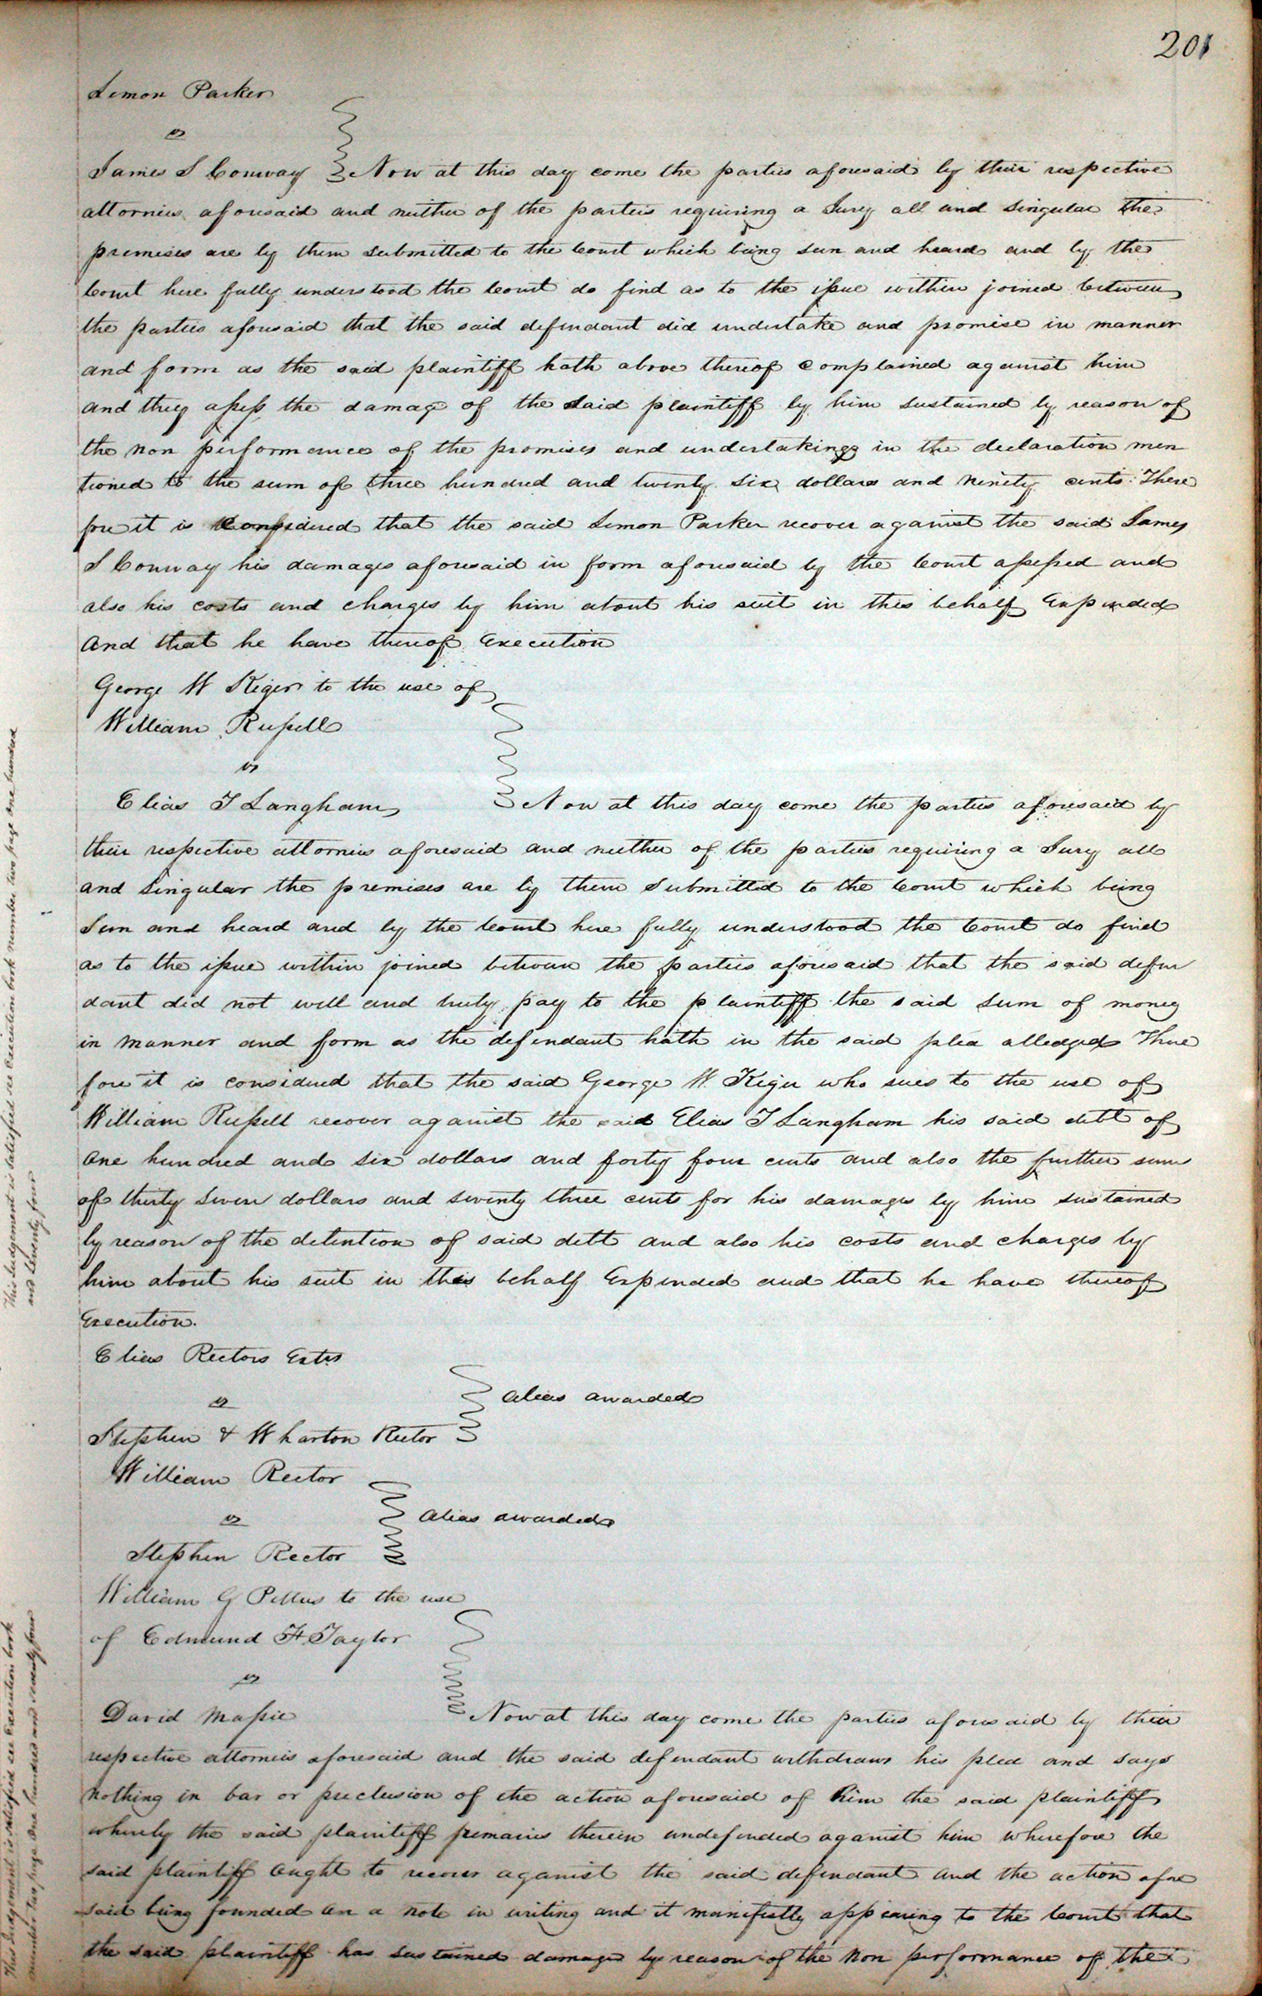 201
Simon Parker
vs
James S Conway Now at this day come the parties aforesaid by their respective
attornies aforesaid and neither of the parteis requiring a Jury all and singular the
premises are by them submitted to the Court which being seen and heard and by the
Court here fully understood the Court do find as to the issue within joined between
the parties aforesaid that the said defendant did undertake and promise in manner
and form as the said plaintiff hath above thereof complained against him
and they assess the damage of the said plaintiff by him sustained by reason of
the non performance of the promises and undertakings in the declaration men
tioned to the sum of three hundred and twenty six dollars and ninety cents There
fore it is considered that the said Simon Parker recover against the said James
S Conway his damages aforesaid in form aforesaid by the Court assessed and
also his costs and charges by him about his suit in this behalf Expended
and that he have thereof Execution
George W Kiger to the use of
William Russell
vs
Elias T Langham Now at this day come the parties aforesaid by
their respective attornies aforesaid and neither of the parties requiring a Jury all
and singular the premises are by them submitted to the Court which being
seen and heard and by the Court here fully understood the Court do find
as to the issue within joined between the parties aforesaid that the said defen
dant did not well and truly pay to the plaintiff the said sum of money
in manner and form as the defendant hath in the said plea alledged There
fore it is considered that the said George W Kiger who sues to the use of
William Russell recover against the said Elias T Langham his said debt of
one hundred and six dollars and forty four cents and also the further sum
of thirty seven dollars and seventy three cents for his damages by him sustained
by reason of the detention of said debt and also his costs and charges by
him about his suit in this behalf Expended and that he have thereof
Execution.
Elias Rectors Extrs
vs
alias awarded
Stephen & Wharton Rector
William Rector
vs
alias awarded
Stephen Rector
William G Pettus to the use
of Edmund F Taylor
vs
David Massie Now at this day come the parties aforesaid by their
respective attornies aforesaid and the said defendant withdraws his plea and says
nothing in bar or preclusion of the action aforesaid of him the said plaintiff
whereby the said plaintiff remains therein undefended against him wherefore the
said plaintiff ought to recover against the said defendant and the action afore
said being founded on a note in writing and it manifestly appearing to the Court that
the said plaintiff has sustained damage by reason of the non performance of the
This Judgement is satisfied see execution book number two page one hundred
and seventy four
This Judgement is satisfied see execution book
number two page one hundred and seventy four